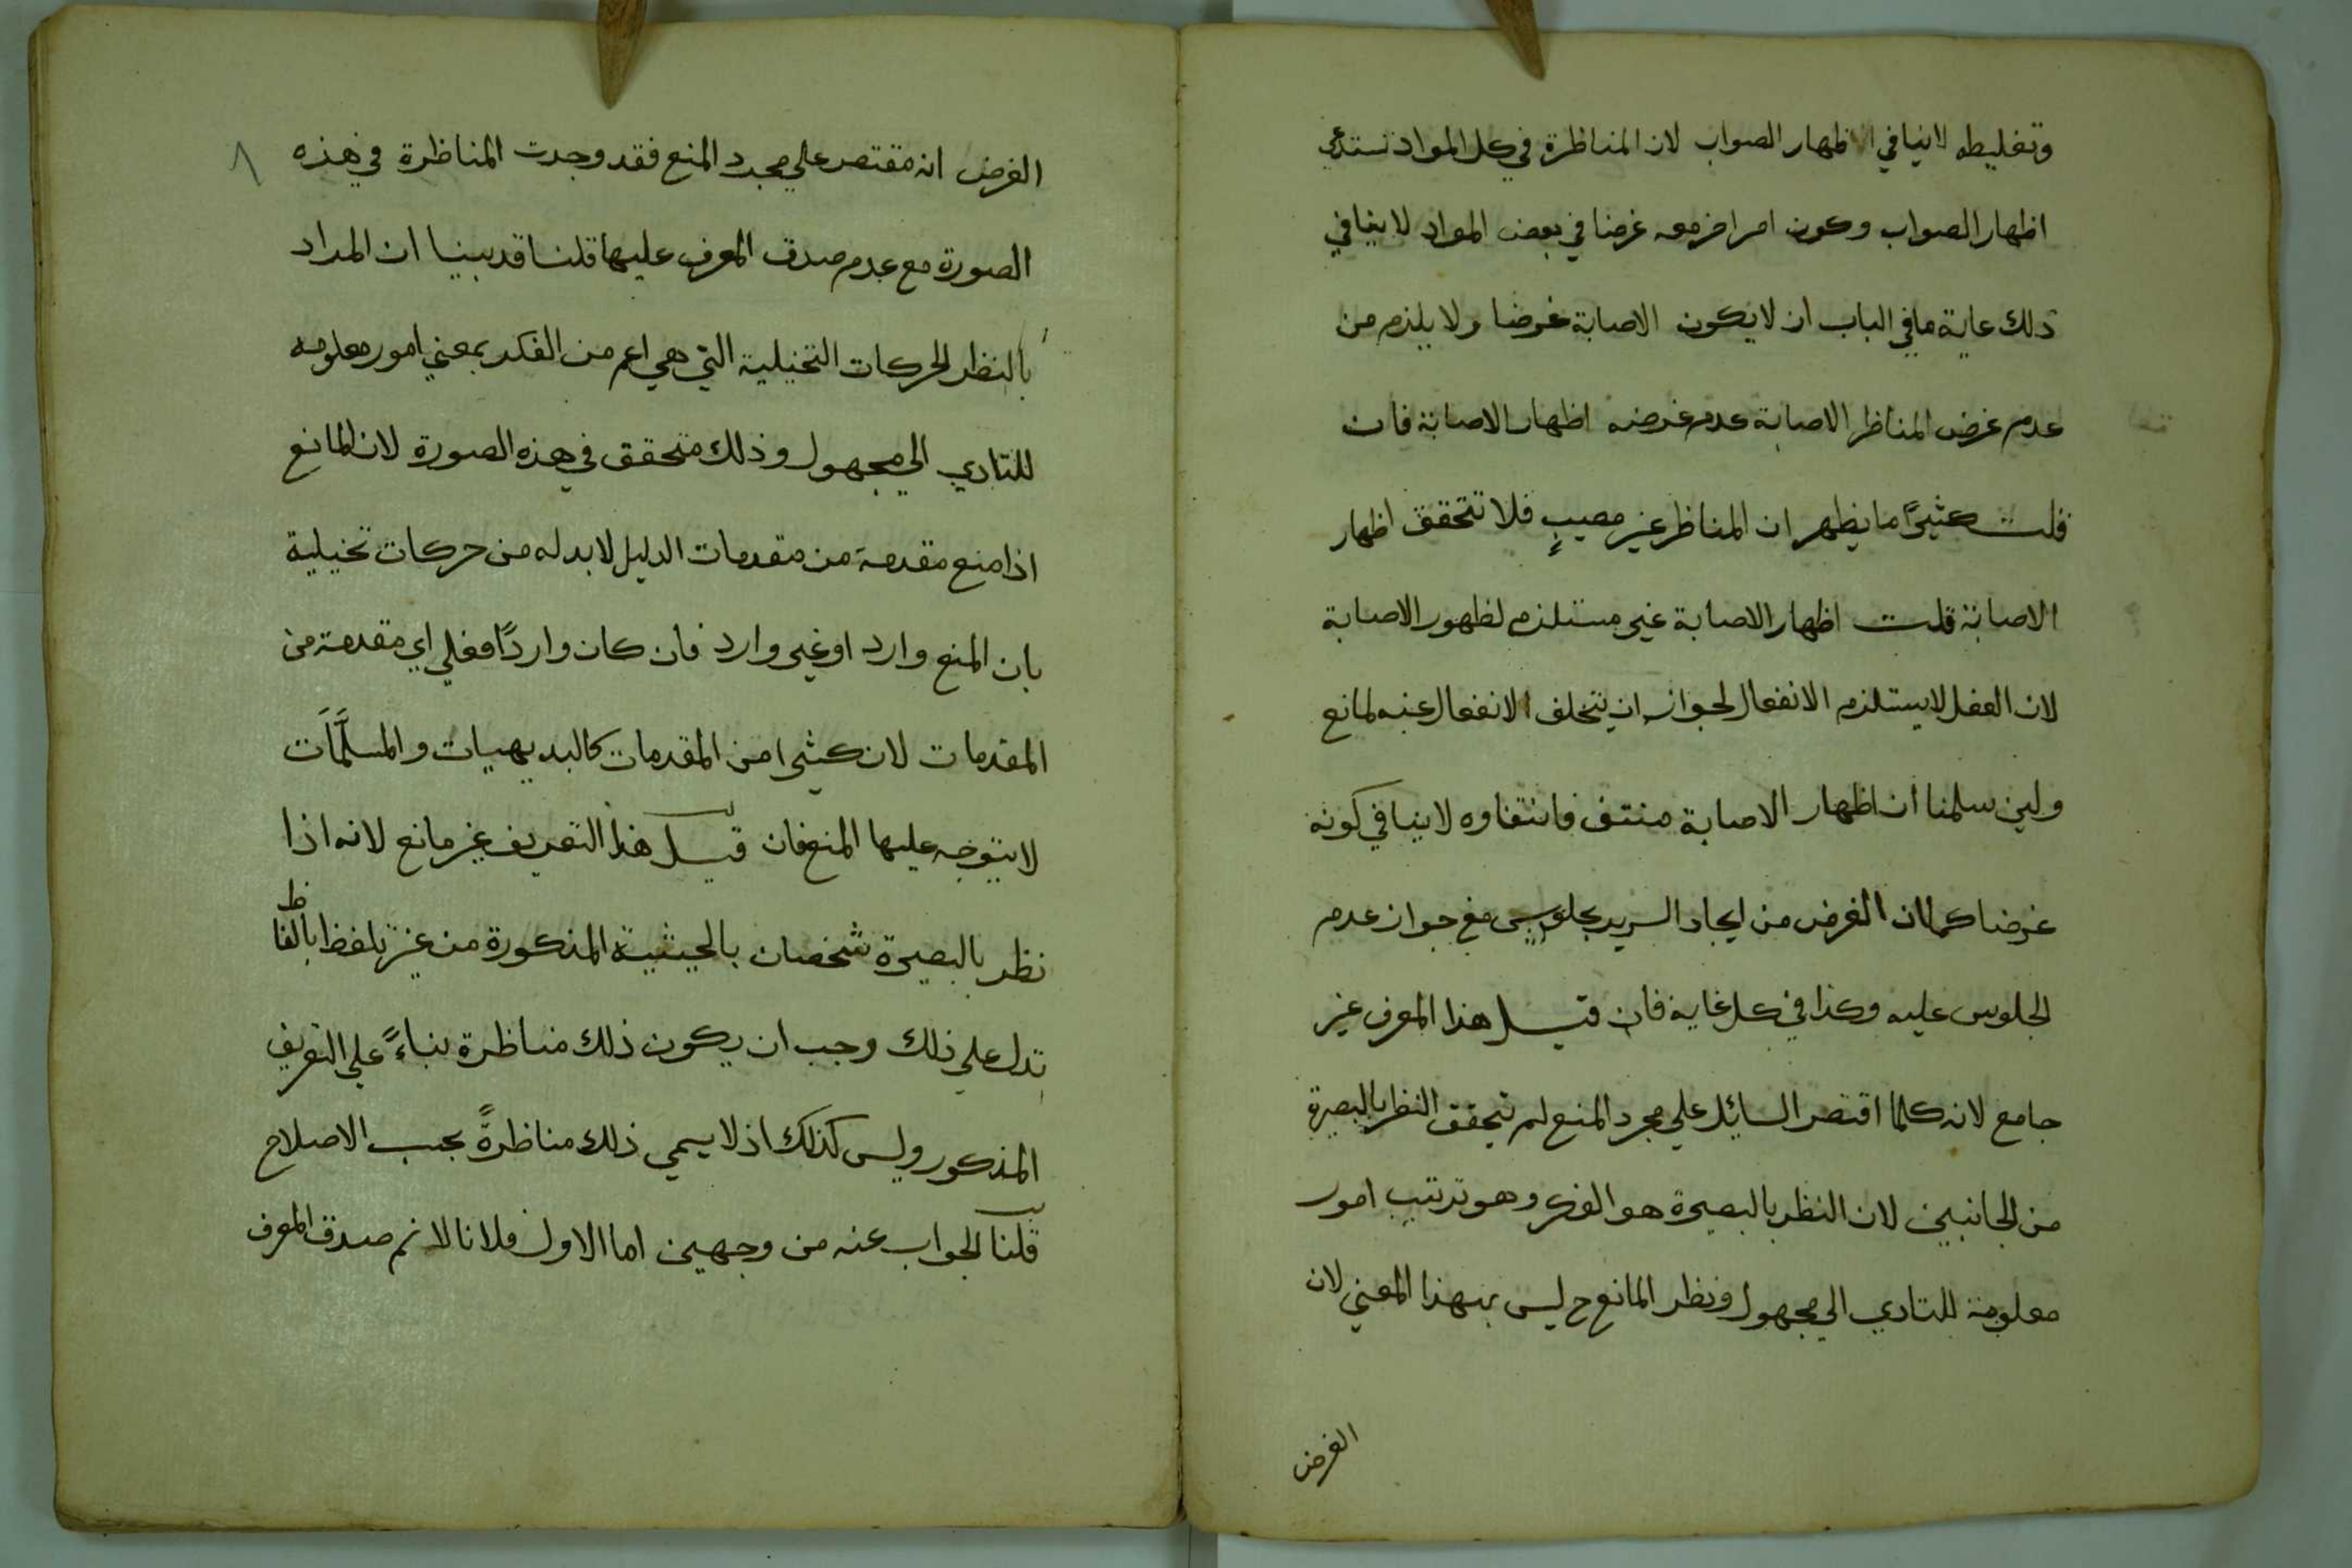 وتغليطه لاينافي اظهار الصواب لان المناظرة في كل المواد تستدعي
اظهار الصواب وكون امر اخر معه غرضا في بعض المواد لا ينافي
ذلك غاية ما في الباب ان لا يكون الاصابة غرضا ولا يلزم من
عدم غرض المناظر الاصابة عدم غرضه اظهار الاصابة فان
قلت كثيرًا ما يظهر ان المناظر غير مصيبٍ فلا تتحقق اظهار
الاصابة قلت اظهار الاصابة غير مستلزم لظهور الاصابة
لان الفعل لا يستلزم الانفعال لجواز ان يتخلف الانفعال عنه لمانع
ولين سلمنا ان اظهار الاصابة منتف فانتفاوه لا ينافي كونه
غرضا كما ان الغرض من ايجاد السرير جلوس مع جواز عدم
الجلوس عليه وكذا في كل غاية فان قيل هذا المعرف غير
جامع لانه كلما اقتصر السايل علي مجرد المنع لم يتحقق النظر بالبصيرة
من الجانبين لان النظر بالبصيرة هو الفكر وهو ترتيب امور
معلومة للتادي الي مجهول ونظر المانع ح ليس بهذا المعني لان
الغرض
٨
الغرض انه مقتصر علي مجرد المنع فقد وجدت المناظرة في هذه
الصورة مع عدم صدق المعرف عليها قلنا قد بينا ان المراد
بالنظر الحركات التخيلية التي هي اعم من الفكر بمعني امور معلومه
للتادي الي مجهول وذلك متحقق في هذه الصورة لان المانع
اذا منع مقدمة من مقدمات الدليل لابد له من حركات تخيلية
بان المنع وارد او غير وارد فان كان واردًا فعلي اي مقدمة من
المقدمات لان كثيرا من المقدمات كالبديهيات والمسلّمات
لا يتوجه عليها المنع فان قيل هذا التعريف غير مانع لانه اذا
نظر بالبصيرة شخصان بالحيثية المذكورة من غير تلفظ بالفاظ
تدل علي ذلك وجب ان يكون ذلك مناظرة بناءً علي التعريف
المذكور وليس كذلك اذ لا يسمي ذلك مناظرةً بحسب الاصلاح
قلنا الجواب عنه من وجهين اما الاول فلانا لا نم صدق المعرف